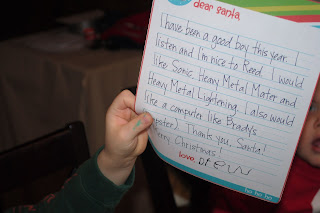 dear santa,
I have been a good boy this year. I
listen and I'm nice to Reed. I would
like Sonic, Heavy Metal Mater and
Heavy Metal Lightening. I also would
like a computer like Brady's
(Napster). Thank you, Santa!
Merry Christmas!
love, Drew
ho! ho! ho!